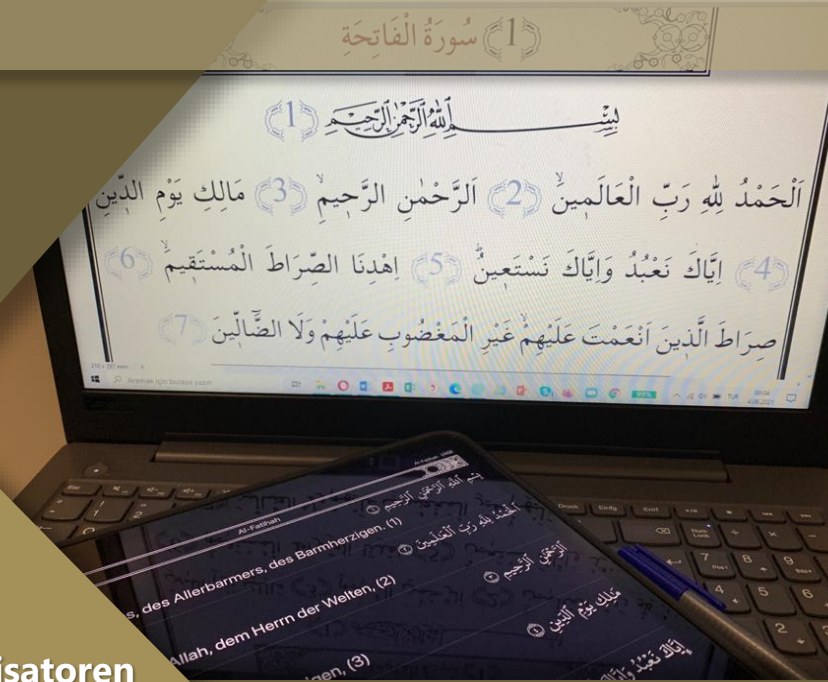 ﴿1﴾ سُورَةُ الْفَاتِحَةِ
بِسْمِ اللّٰهِ الرَّحْمٰنِ الرَّحِيمِ ﴿1﴾
اَلْحَمْدُ لِلّٰهِ رَبِّ الْعَالَمِينَۙ ﴿2﴾ اَلرَّحْمٰنِ الرَّحِيمِۙ ﴿3﴾ مَالِكِ يَوْمِ الدِّينِ
﴿4﴾ اِيَّاكَ نَعْبُدُ وَاِيَّاكَ نَسْتَعِينُۜ ﴿5﴾ اِهْدِنَا الصِّرَاطَ الْمُسْتَقِيمَۙ ﴿6﴾
صِرَاطَ الَّذِينَ اَنْعَمْتَ عَلَيْهِمْۙ غَيْرِ الْمَغْضُوبِ عَلَيْهِمْ وَلَا الضَّٓالِّينَ ﴿7﴾
Aramak için buraya yazın
99%
00:04
4.06.2021
Al-Fatihah
بِسْمِ اللَّهِ الرَّحْمَٰنِ الرَّحِيمِ
s, des Allerbarmers, des Barmherzigen. (1)
الْحَمْدُ لِلَّهِ رَبِّ الْعَالَمِينَ
Allah, dem Herrn der Welten, (2)
الرَّحْمَٰنِ الرَّحِيمِ
gen, (3)
مَالِكِ يَوْمِ الدِّينِ
إِيَّاكَ نَعْبُدُ وَإِيَّاكَ
isatoren